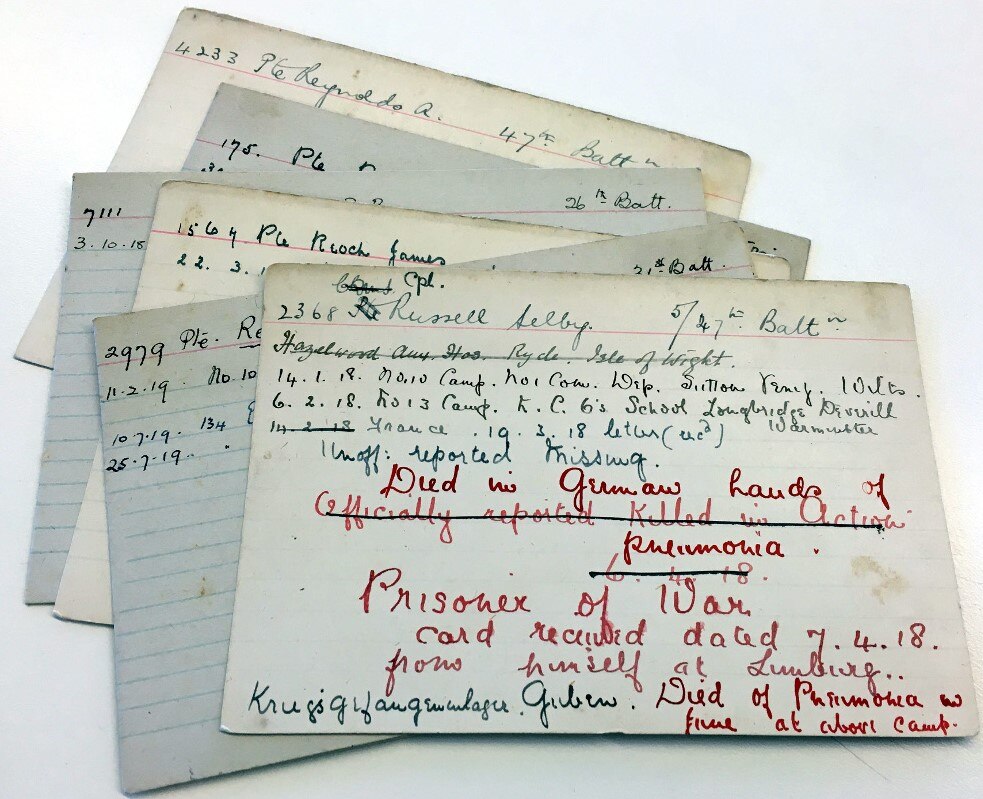 4233 Pte Reynolds A. 47th Battn
175. Pte
26th Batt.
7111
3.10.18
1564 Pte Reoch James
22. 3. 1
21st Batt.
2979 Pte. Re
11.2.19 No. 10
10.7.19. 134
25.7.19.
Cpl.
2368 Pte Russell Selby. 5/47th Battn
Hazelwood Aux. Hos. Ryde. Isle of Wight.
14.1.18. No.10 Camp. No1 Com. Dep. Sutton Veny. Wilts.
6.2.18. No13 Camp. K.C.6's School Longbridge Deverill
Warminster
14.2.18 France. 19.3.18 letter (recd)
Unoff: reported Missing.
Died in German hands of
Officially reported Killed in Action
pneumonia.
6.4.18.
Prisoner of War
card received dated 7.4.18.
from himself at Limburg..
Kriegsgefangenenlager. Guben. Died of Pneumonia in
June at above camp.